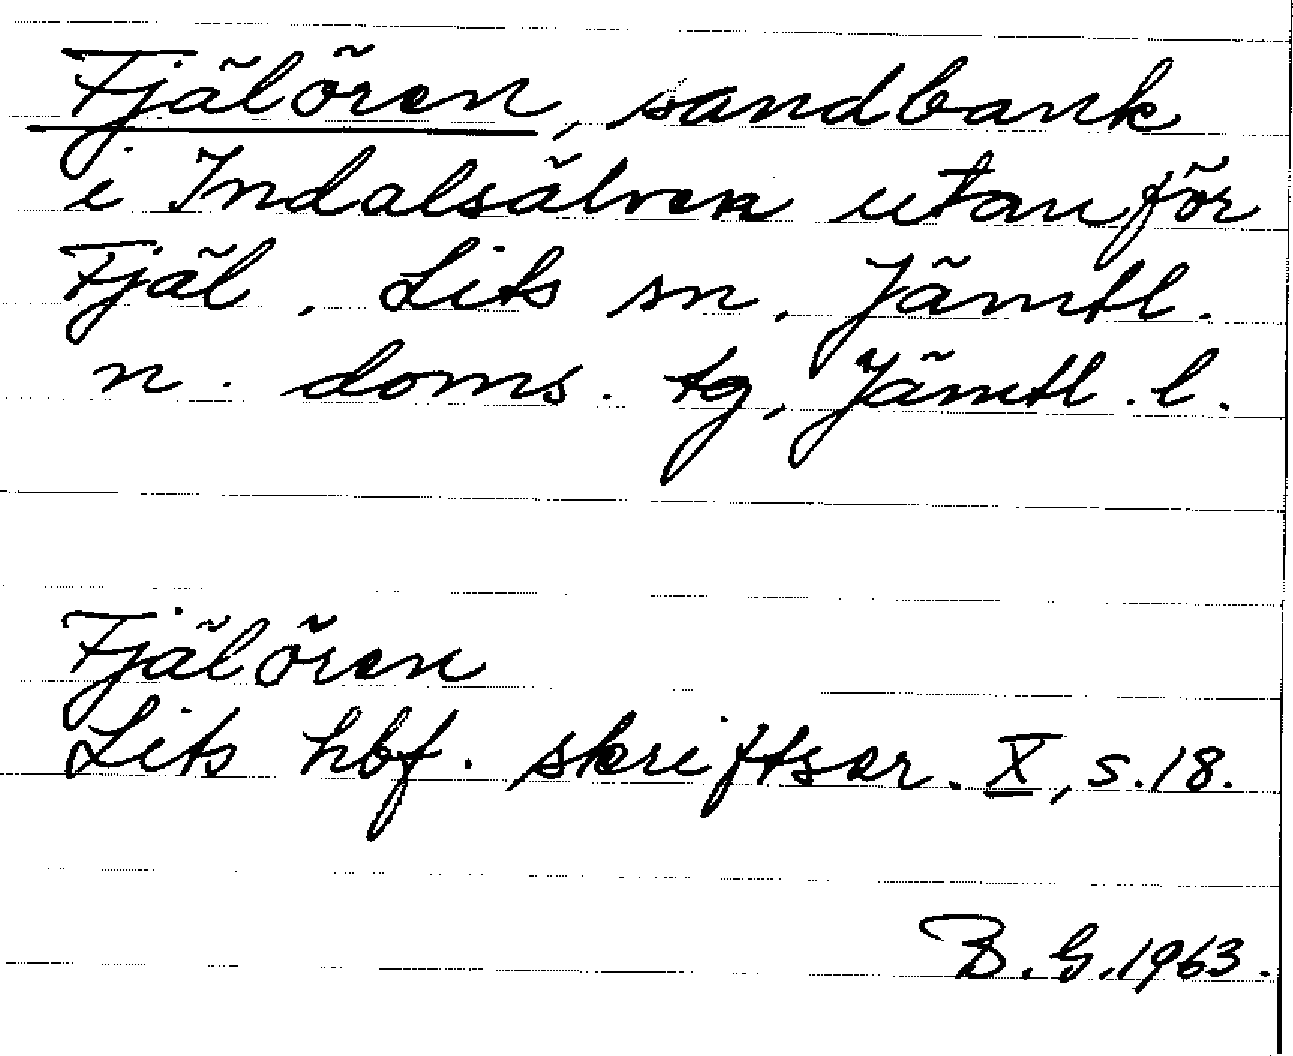 Fjälören, sandbank
i Indalsälven utanför
Fjäl. Lits sn, Jämtl.
n. doms. tg, Jämtl. l.
Fjälören
Lits hbf. skriftser. X, s. 18.
B. G. 1963.